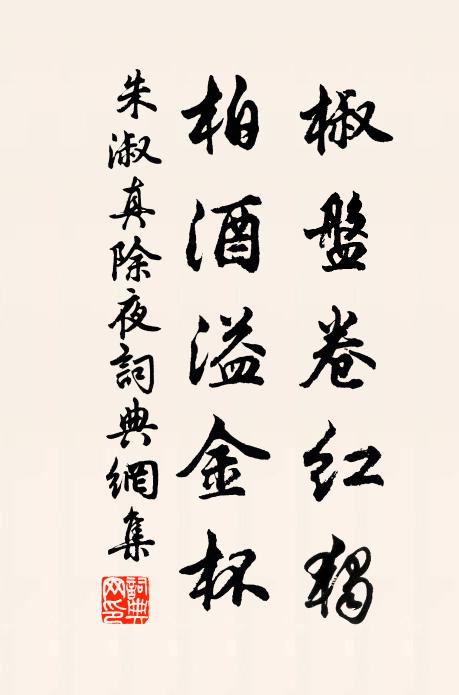 椒盤卷紅獨
柏酒溢金杯
朱淑真除夜詞典網集
詞典網印